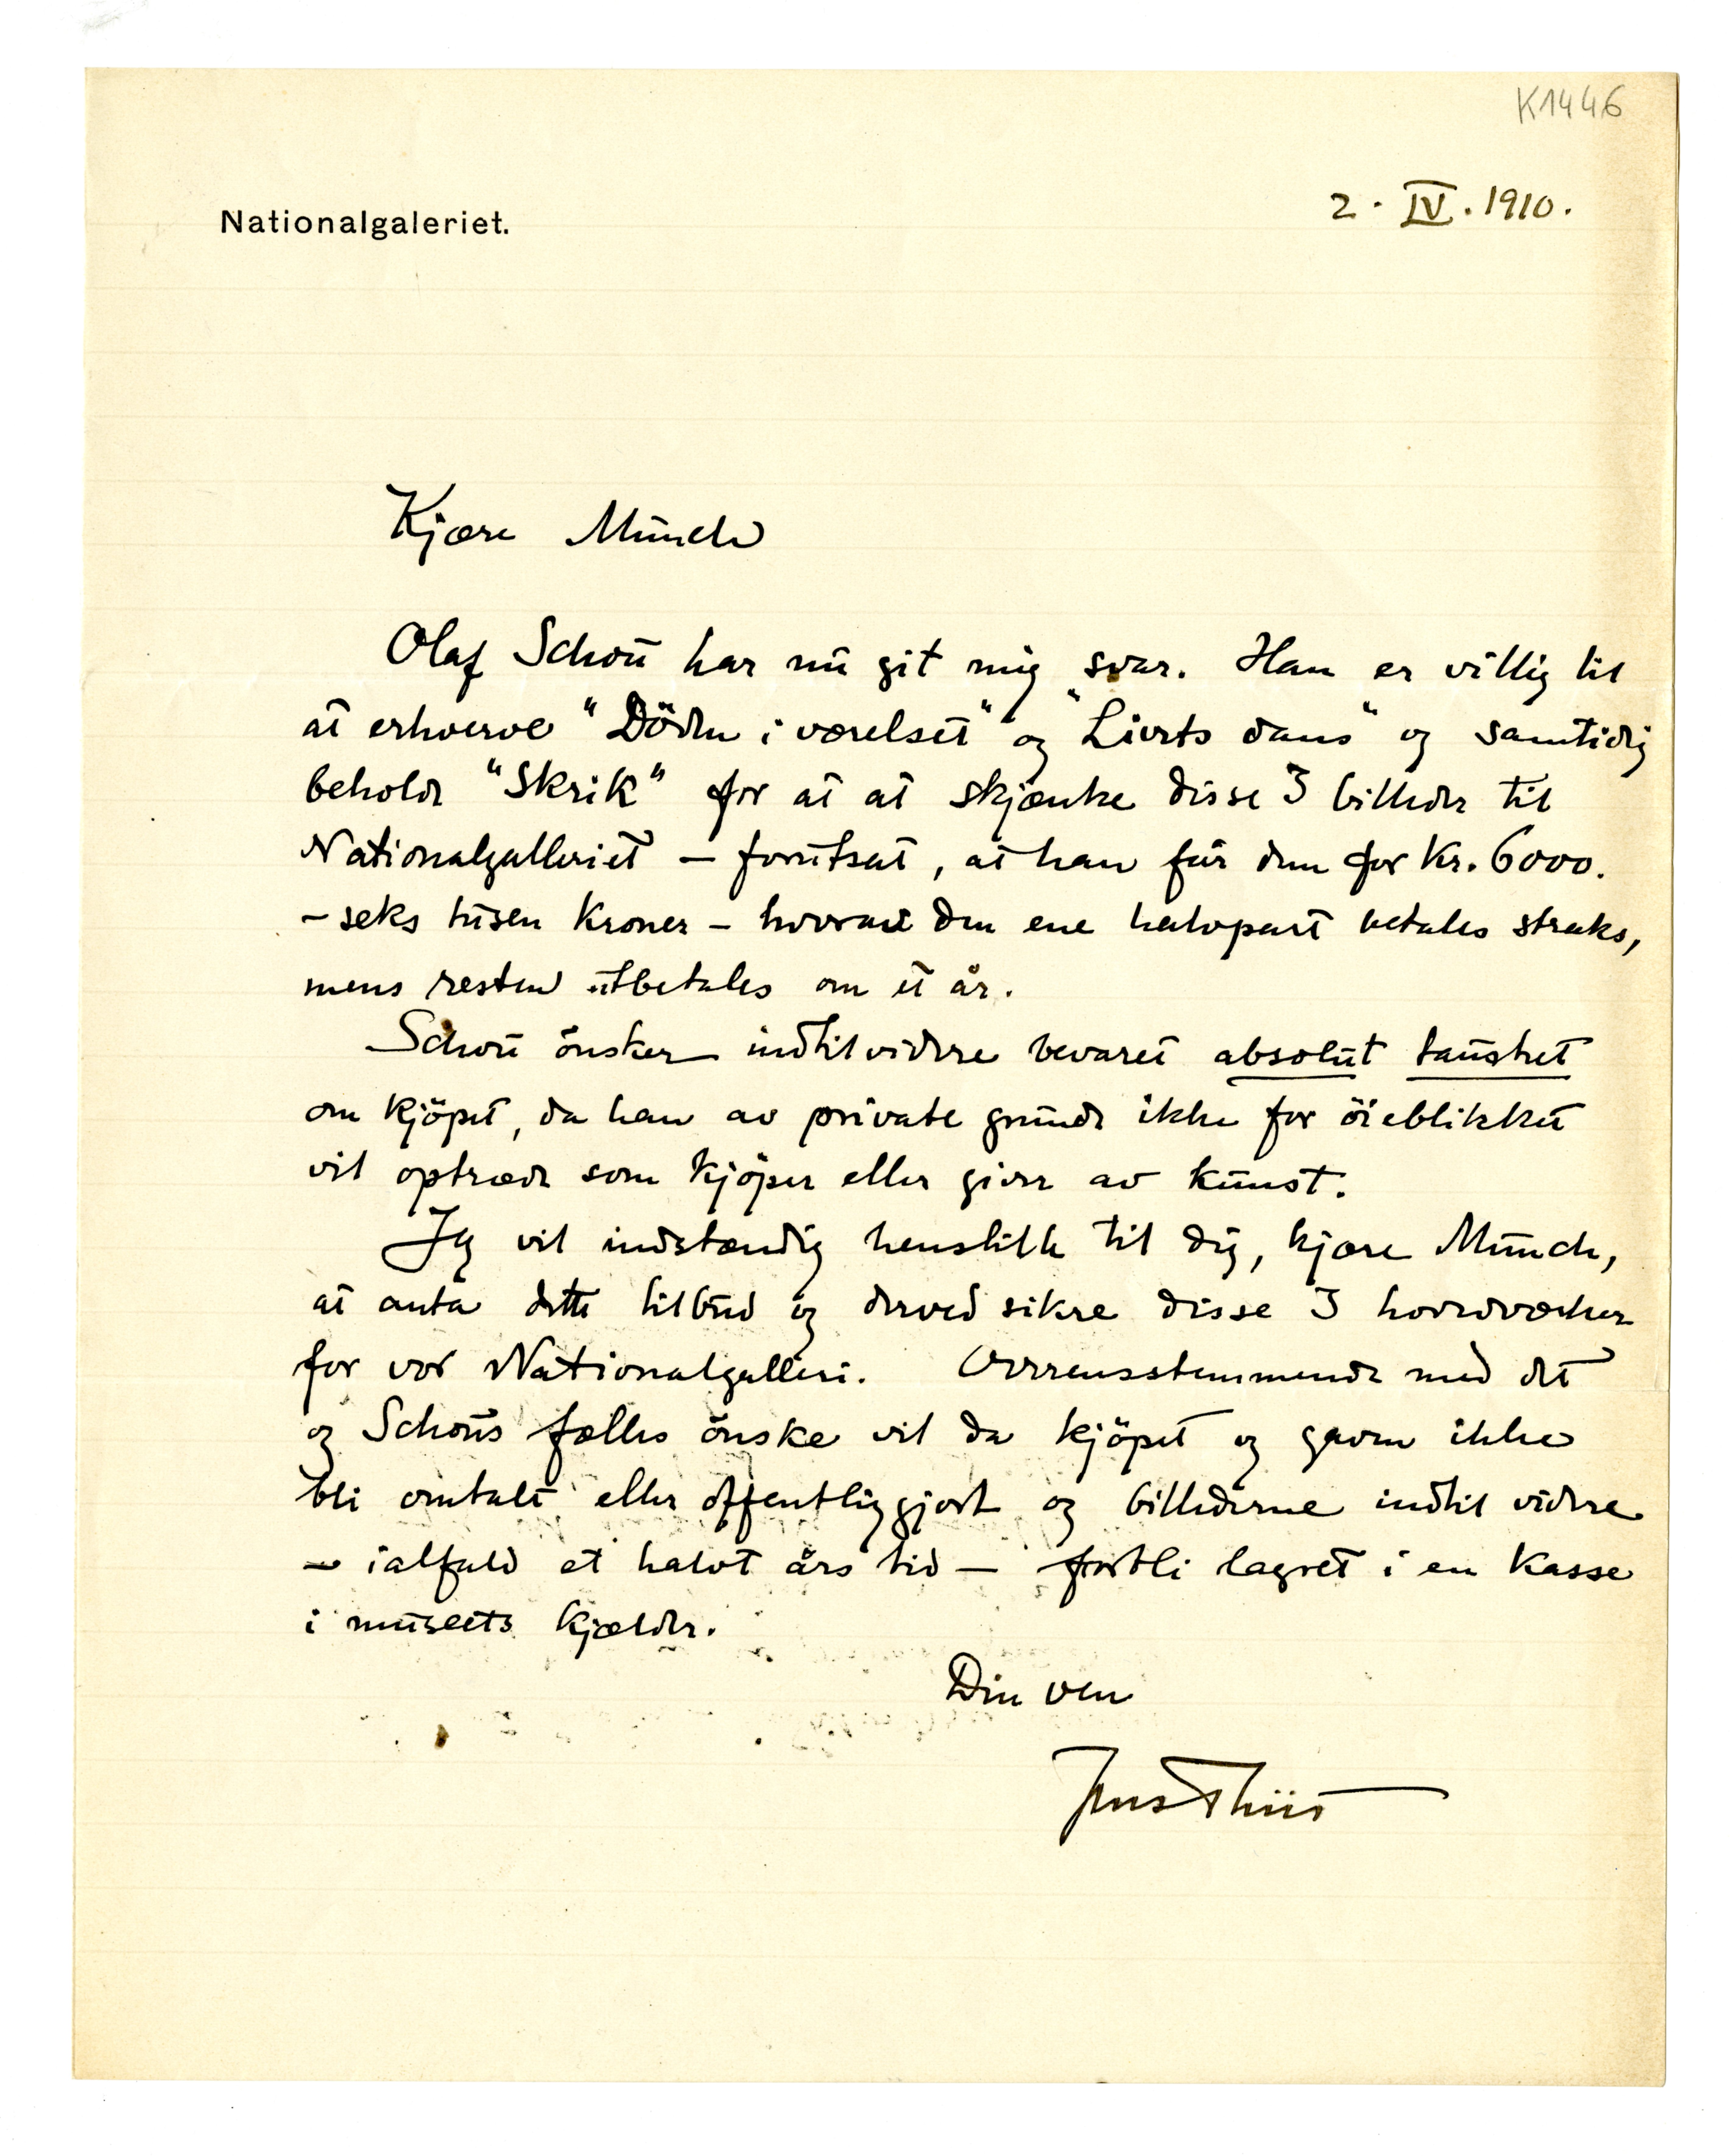 K1446
Nationalgaleriet.
2. IV. 1910.
Kjære Munch
Olaf Schou har nu git mig svar. Han er villig til
at erhverve "Döden i værelset" og "Livets dans" og samtidig
beholde "Skrik" for at at skjænke disse 3 billeder til
Nationalgalleriet – forutsat, at han får dem for Kr. 6000.
– seks tusen kroner – hvorav den ene halvpart betales straks,
mens resten utbetales om et år.
Schou önsker indtilvidere bevaret absolut taushet
om kjöpet, da han av private grunde ikke for öieblikket
vil optræde som kjöper eller giver av kunst.
Jeg vil indstændig henstille til dig, kjære Munch,
at anta dette tilbud og derved sikre disse 3 hovedværker
for vor Nationalgalleri. Overensstemmende med dit
og Schous fælles önske vil da kjöpet og gaven ikke
bli omtalt eller offentliggjort og billederne indtil videre
– ialfald et halvt års tid – forbli lagret i en kasse
i museets kjælder.
Din ven
Jens Thiis